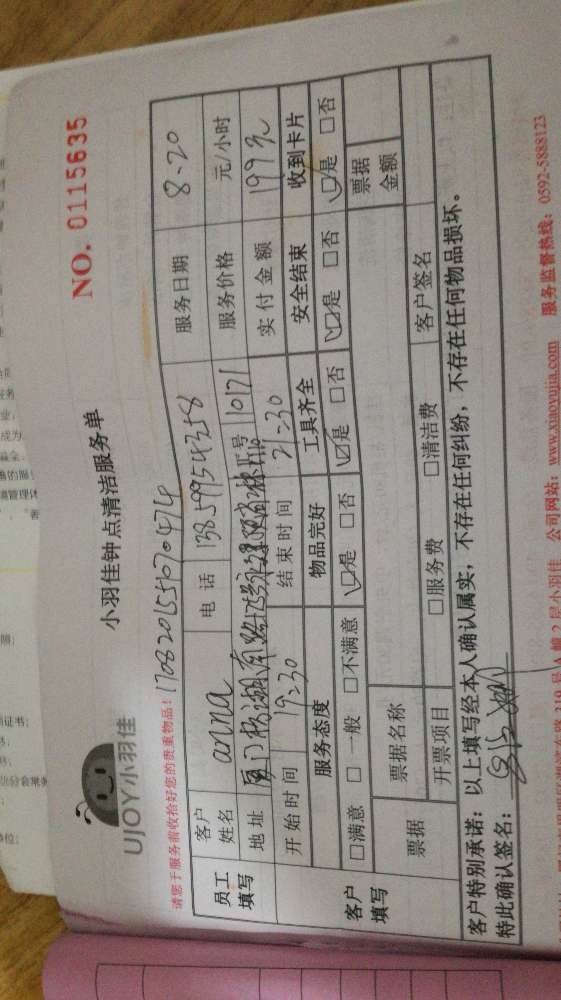 UJOY小羽佳
小羽佳钟点清洁服务单
NO. 0115635
请您于服务前收拾好您的贵重物品! 1708201551070474
员工填写
客户姓名 anna 电话 13859954358 服务日期 8-20
地址 工号 10171 服务价格 元/小时
开始时间 19:30 结束时间 21:30 实付金额 199元
客户填写
服务态度 物品完好 工具齐全 安全结束 收到卡片
□满意 □一般 □不满意 □是 □否 □是 □否 □是 □否 □是 □否
票据 票据名称 票据金额
开票项目 □服务费 □清洁费 客户签名
客户特别承诺: 以上填写经本人确认属实, 不存在任何纠纷, 不存在任何物品损坏。
特此确认签名:
公司网站: www.xiaoyujia.com 服务监督热线: 0592-5888123